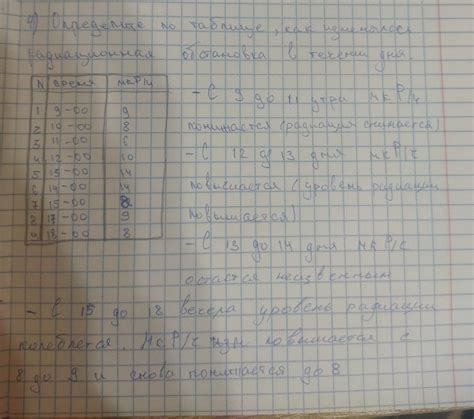 4) Определите по таблице, как изменялась
радиационная обстановка в течении дня.
N время мкР/ч
1 9-00 9
2 10-00 8
3 11-00 6
4 12-00 10
5 13-00 14
6 14-00 14
7 15-00 8
8 17-00 9
9 18-00 8
– С 9 до 11 утра мкР/ч
понижается (радиация снижается)
– С 12 до 13 дня мкР/ч
повышается (уровень радиации
повышается)
– С 13 до 14 дня мкР/с
остаётся неизменным
– С 15 до 18 вечера уровень радиации
колеблется. МкР/ч повышается с
8 до 9 и снова понижается до 8